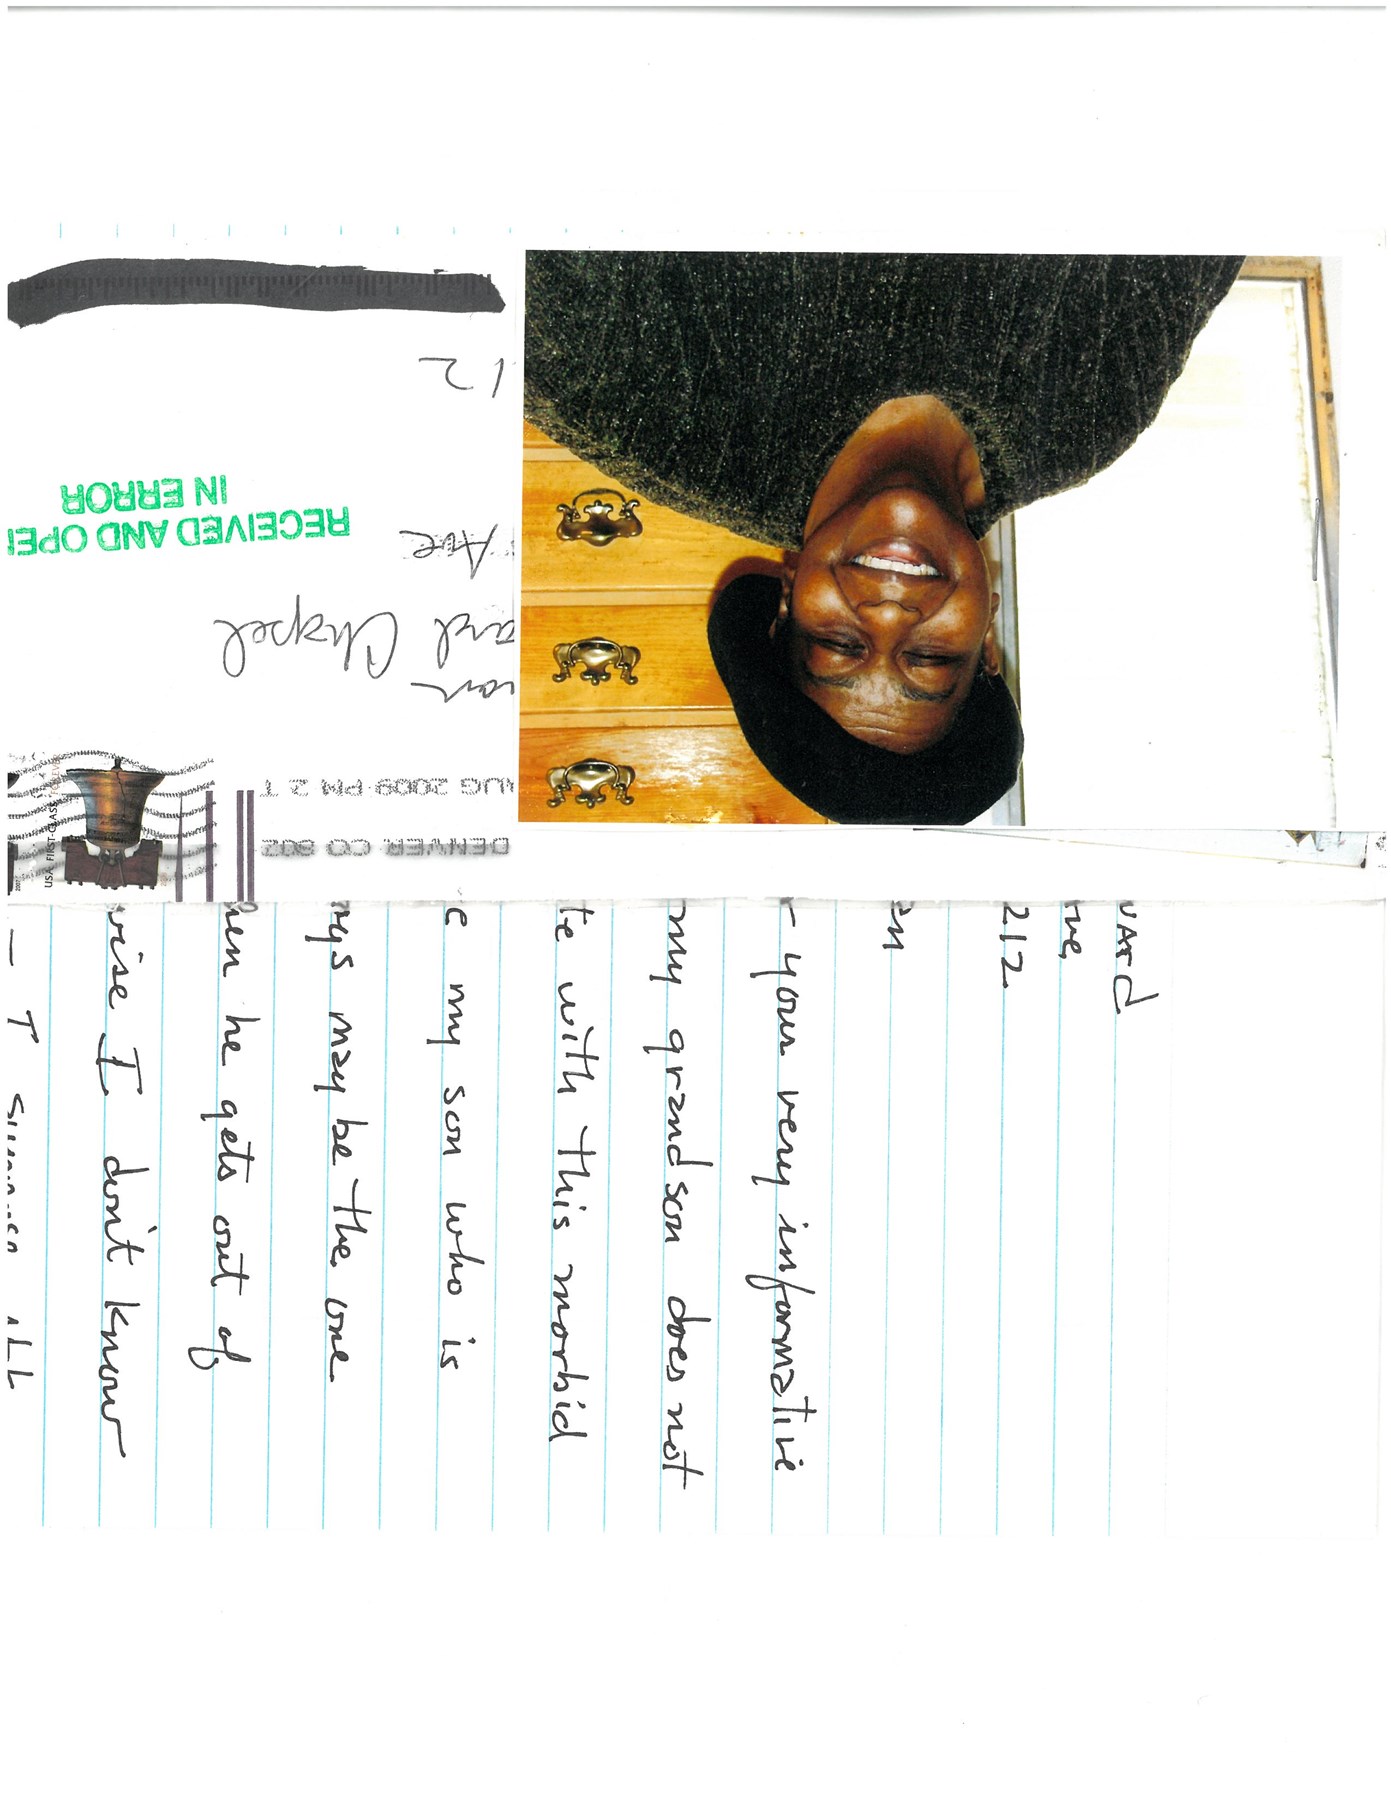 DENVER CO 802
AUG 2009 PM 2 T
USA FIRST-CLASS FOREVER
2007
ard Chapel
Ave
RECEIVED AND OPE
IN ERROR
12
ve,
212
en
your very informative
my grandson does not
te with this morbid
e my son who is
ys may be the one
hen he gets out of
wise I don't know